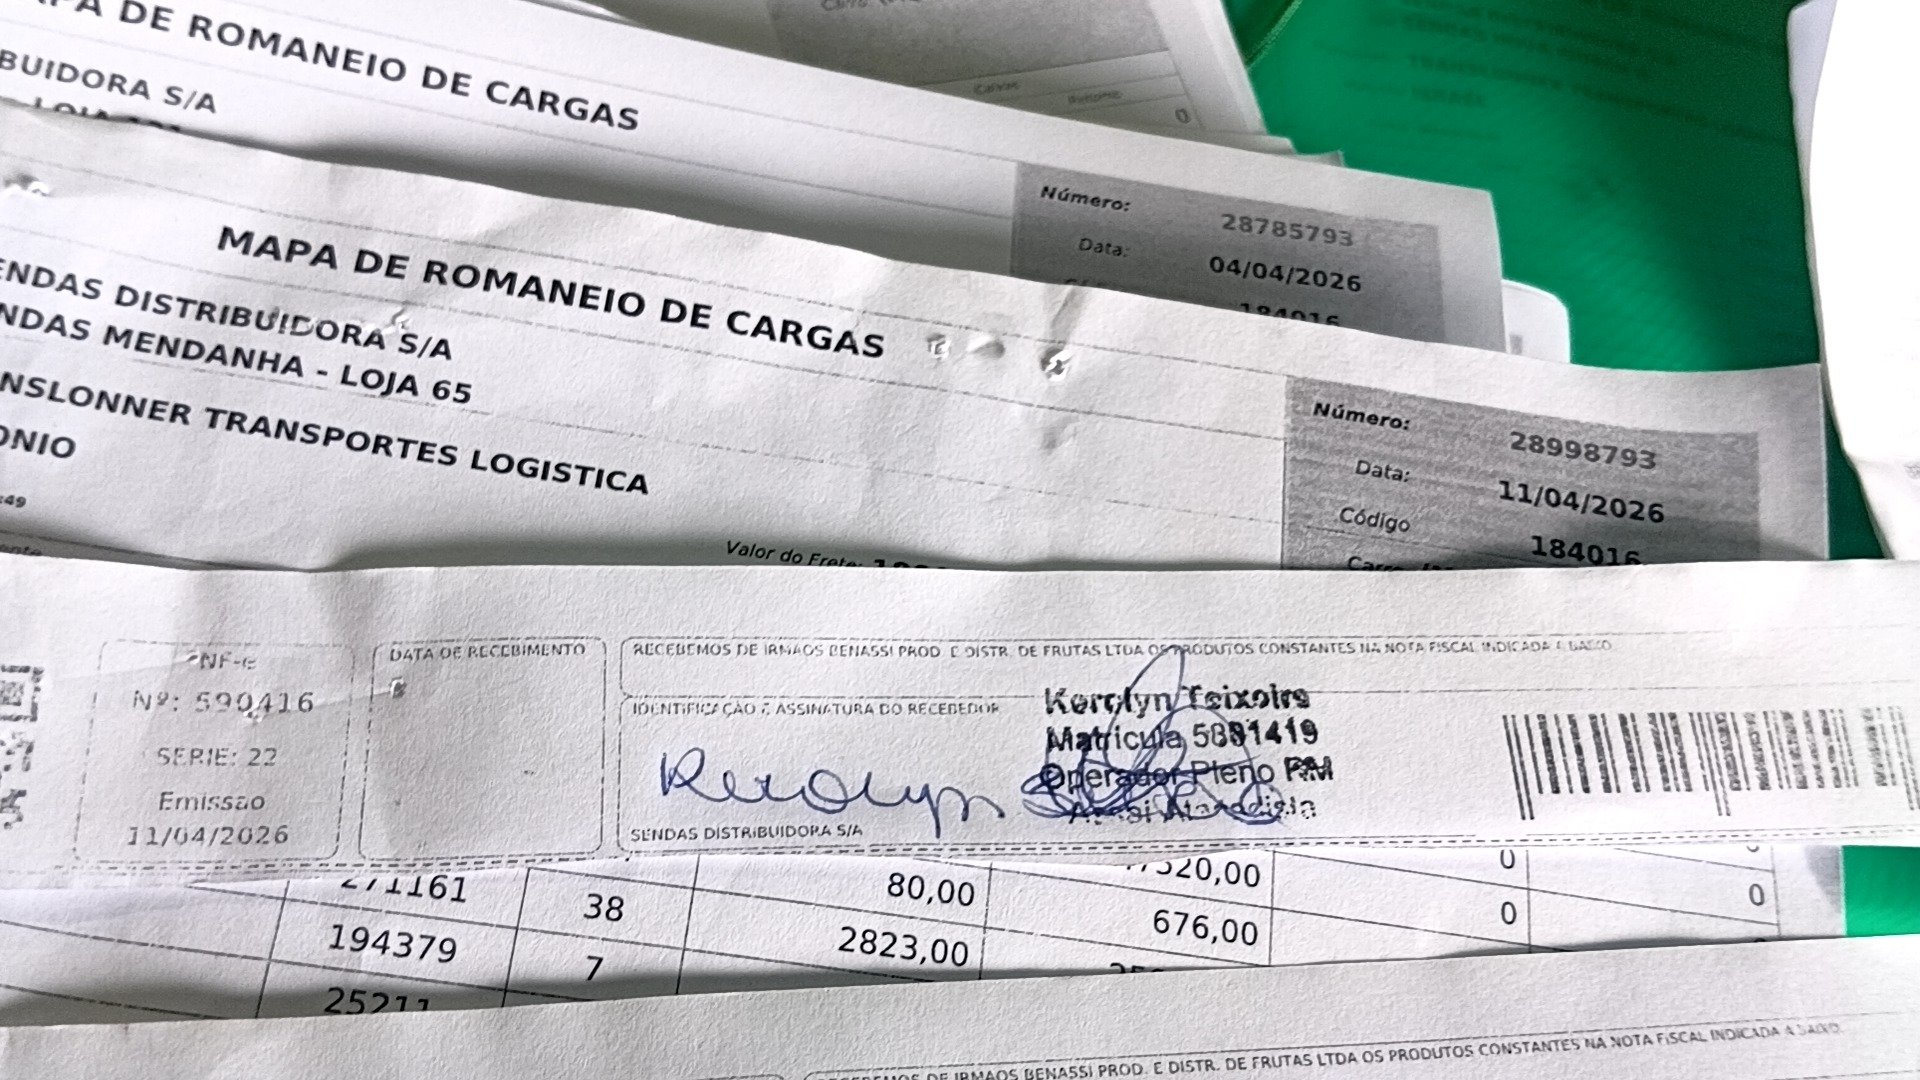 DE ROMANEIO DE CARGAS
BUIDORA S/A
0
Número: 28785793
Data: 04/04/2026
184016
MAPA DE ROMANEIO DE CARGAS
ENDAS DISTRIBUIDORA S/A
NDAS MENDANHA - LOJA 65
NSLONNER TRANSPORTES LOGISTICA
ONIO
:49
Número: 28998793
Data: 11/04/2026
Código 184016
Valor do Frete:
NF-e
Nº: 590416
SERIE: 22
Emissao
11/04/2026
DATA DE RECEBIMENTO
RECEBEMOS DE IRMAOS BENASSI PROD. E DISTR. DE FRUTAS LTDA OS PRODUTOS CONSTANTES NA NOTA FISCAL INDICADA A BAIXO
IDENTIFICAÇÃO E ASSINATURA DO RECEBEDOR
Kerolyn Teixeira
Matricula 5881419
Operador Pleno RM
Assai Atacadista
Kerolyn
SENDAS DISTRIBUIDORA S/A
271161 38 80,00 17320,00 0
194379 7 2823,00 676,00 0 0
25211
DE IRMAOS BENASSI PROD. E DISTR. DE FRUTAS LTDA OS PRODUTOS CONSTANTES NA NOTA FISCAL INDICADA A BAIXO